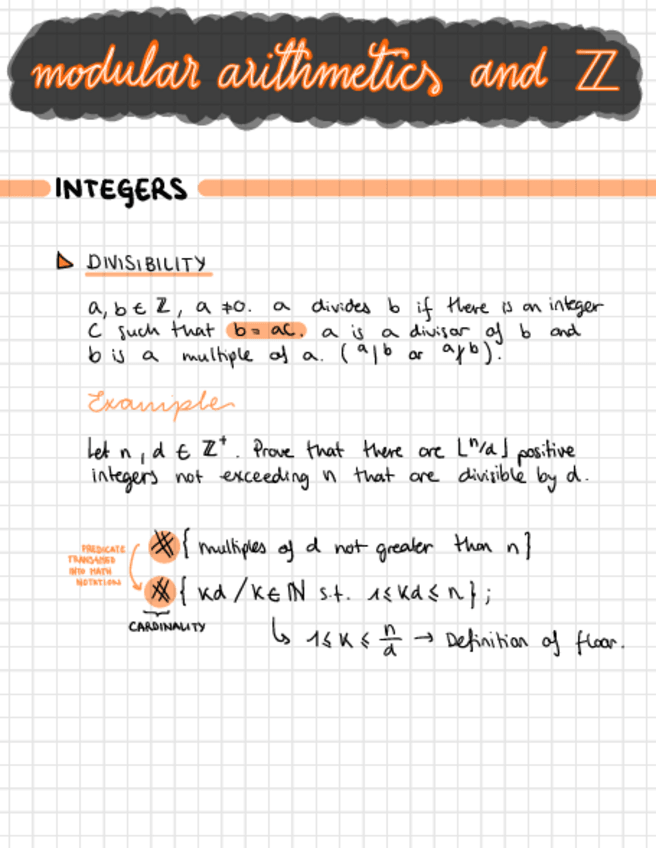 modular arithmetics and ℤ
INTEGERS
DIVISIBILITY
a, b ∈ ℤ, a ≠ 0. a divides b if there is an integer
C such that b = ac. a is a divisor of b and
b is a multiple of a. (a|b or a∤b).
Example
Let n, d ∈ ℤ⁺. Prove that there are ⌊n/d⌋ positive
integers not exceeding n that are divisible by d.
# { multiples of d not greater than n }
PREDICATE
TRANSFORMED
INTO MATH
NOTATION
# { kd / k ∈ ℕ s.t. 1 ≤ kd ≤ n } ;
CARDINALITY
↳ 1 ≤ k ≤ n/d → Definition of floor.